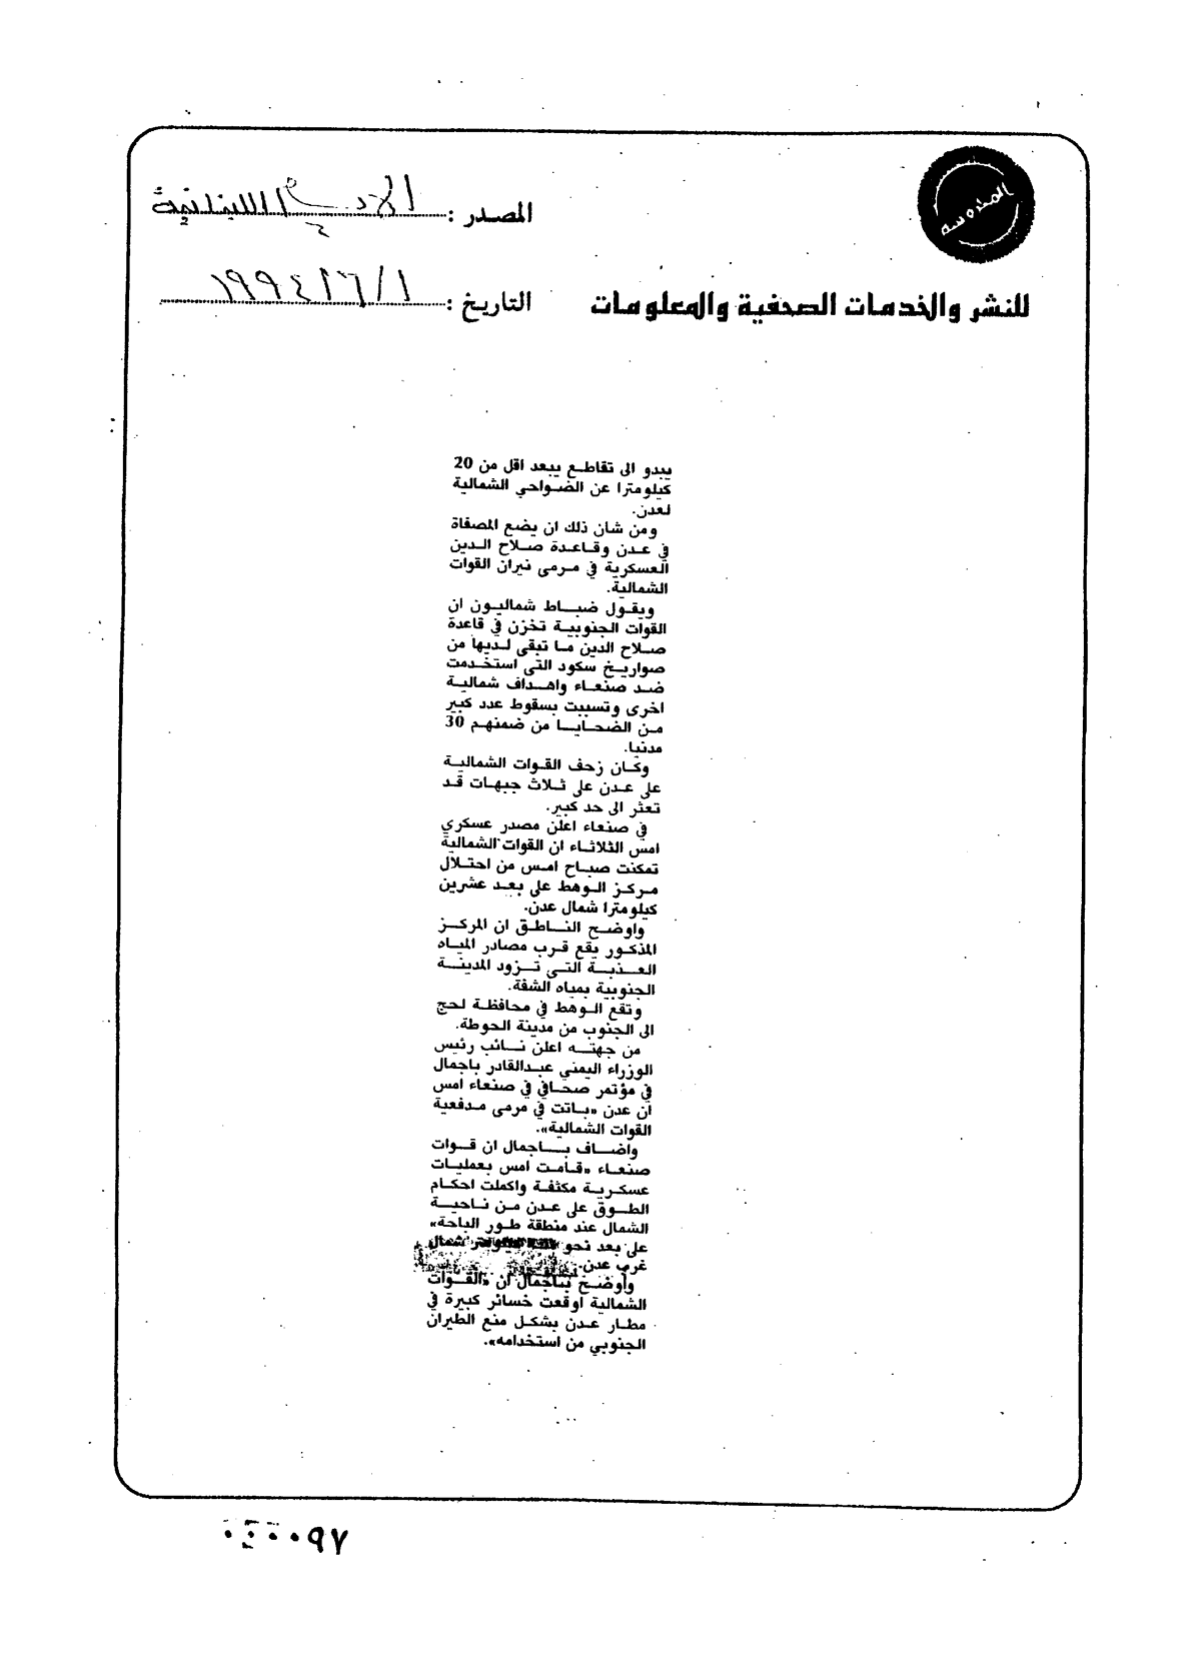 المحروسة
المصدر : اللبنانية
للنشر والخدمات الصحفية والمعلومات
التاريخ : ١٩٩٤/٦/١
يبدو الى تقاطع يبعد اقل من 20
كيلومترا عن الضواحي الشمالية
لعدن.
ومن شان ذلك ان يضع المصفاة
في عدن وقاعدة صلاح الدين
العسكرية في مرمى نيران القوات
الشمالية.
ويقول ضباط شماليون ان
القوات الجنوبية تخزن في قاعدة
صلاح الدين ما تبقى لديها من
صواريخ سكود التي استخدمت
ضد صنعاء واهداف شمالية
اخرى وتسببت بسقوط عدد كبير
من الضحايا من ضمنهم 30
مدنيا.
وكان زحف القوات الشمالية
على عدن على ثلاث جبهات قد
تعثر الى حد كبير.
في صنعاء اعلن مصدر عسكري
امس الثلاثاء ان القوات الشمالية
تمكنت صباح امس من احتلال
مركز الوهط على بعد عشرين
كيلومترا شمال عدن.
واوضح الناطق ان المركز
المذكور يقع قرب مصادر المياه
العذبة التي تزود المدينة
الجنوبية بمياه الشفة.
وتقع الوهط في محافظة لحج
الى الجنوب من مدينة الحوطة.
من جهته اعلن نائب رئيس
الوزراء اليمني عبدالقادر باجمال
في مؤتمر صحافي في صنعاء امس
ان عدن «باتت في مرمى مدفعية
القوات الشمالية».
واضاف باجمال ان قوات
صنعاء «قامت امس بعمليات
عسكرية مكثفة واكملت احكام
الطوق على عدن من ناحية
الشمال عند منطقة طور الباحة»
على بعد نحو شمال
غرب عدن.
وأوضح باجمال ان «القوات
الشمالية اوقعت خسائر كبيرة في
مطار عدن بشكل منع الطيران
الجنوبي من استخدامه».